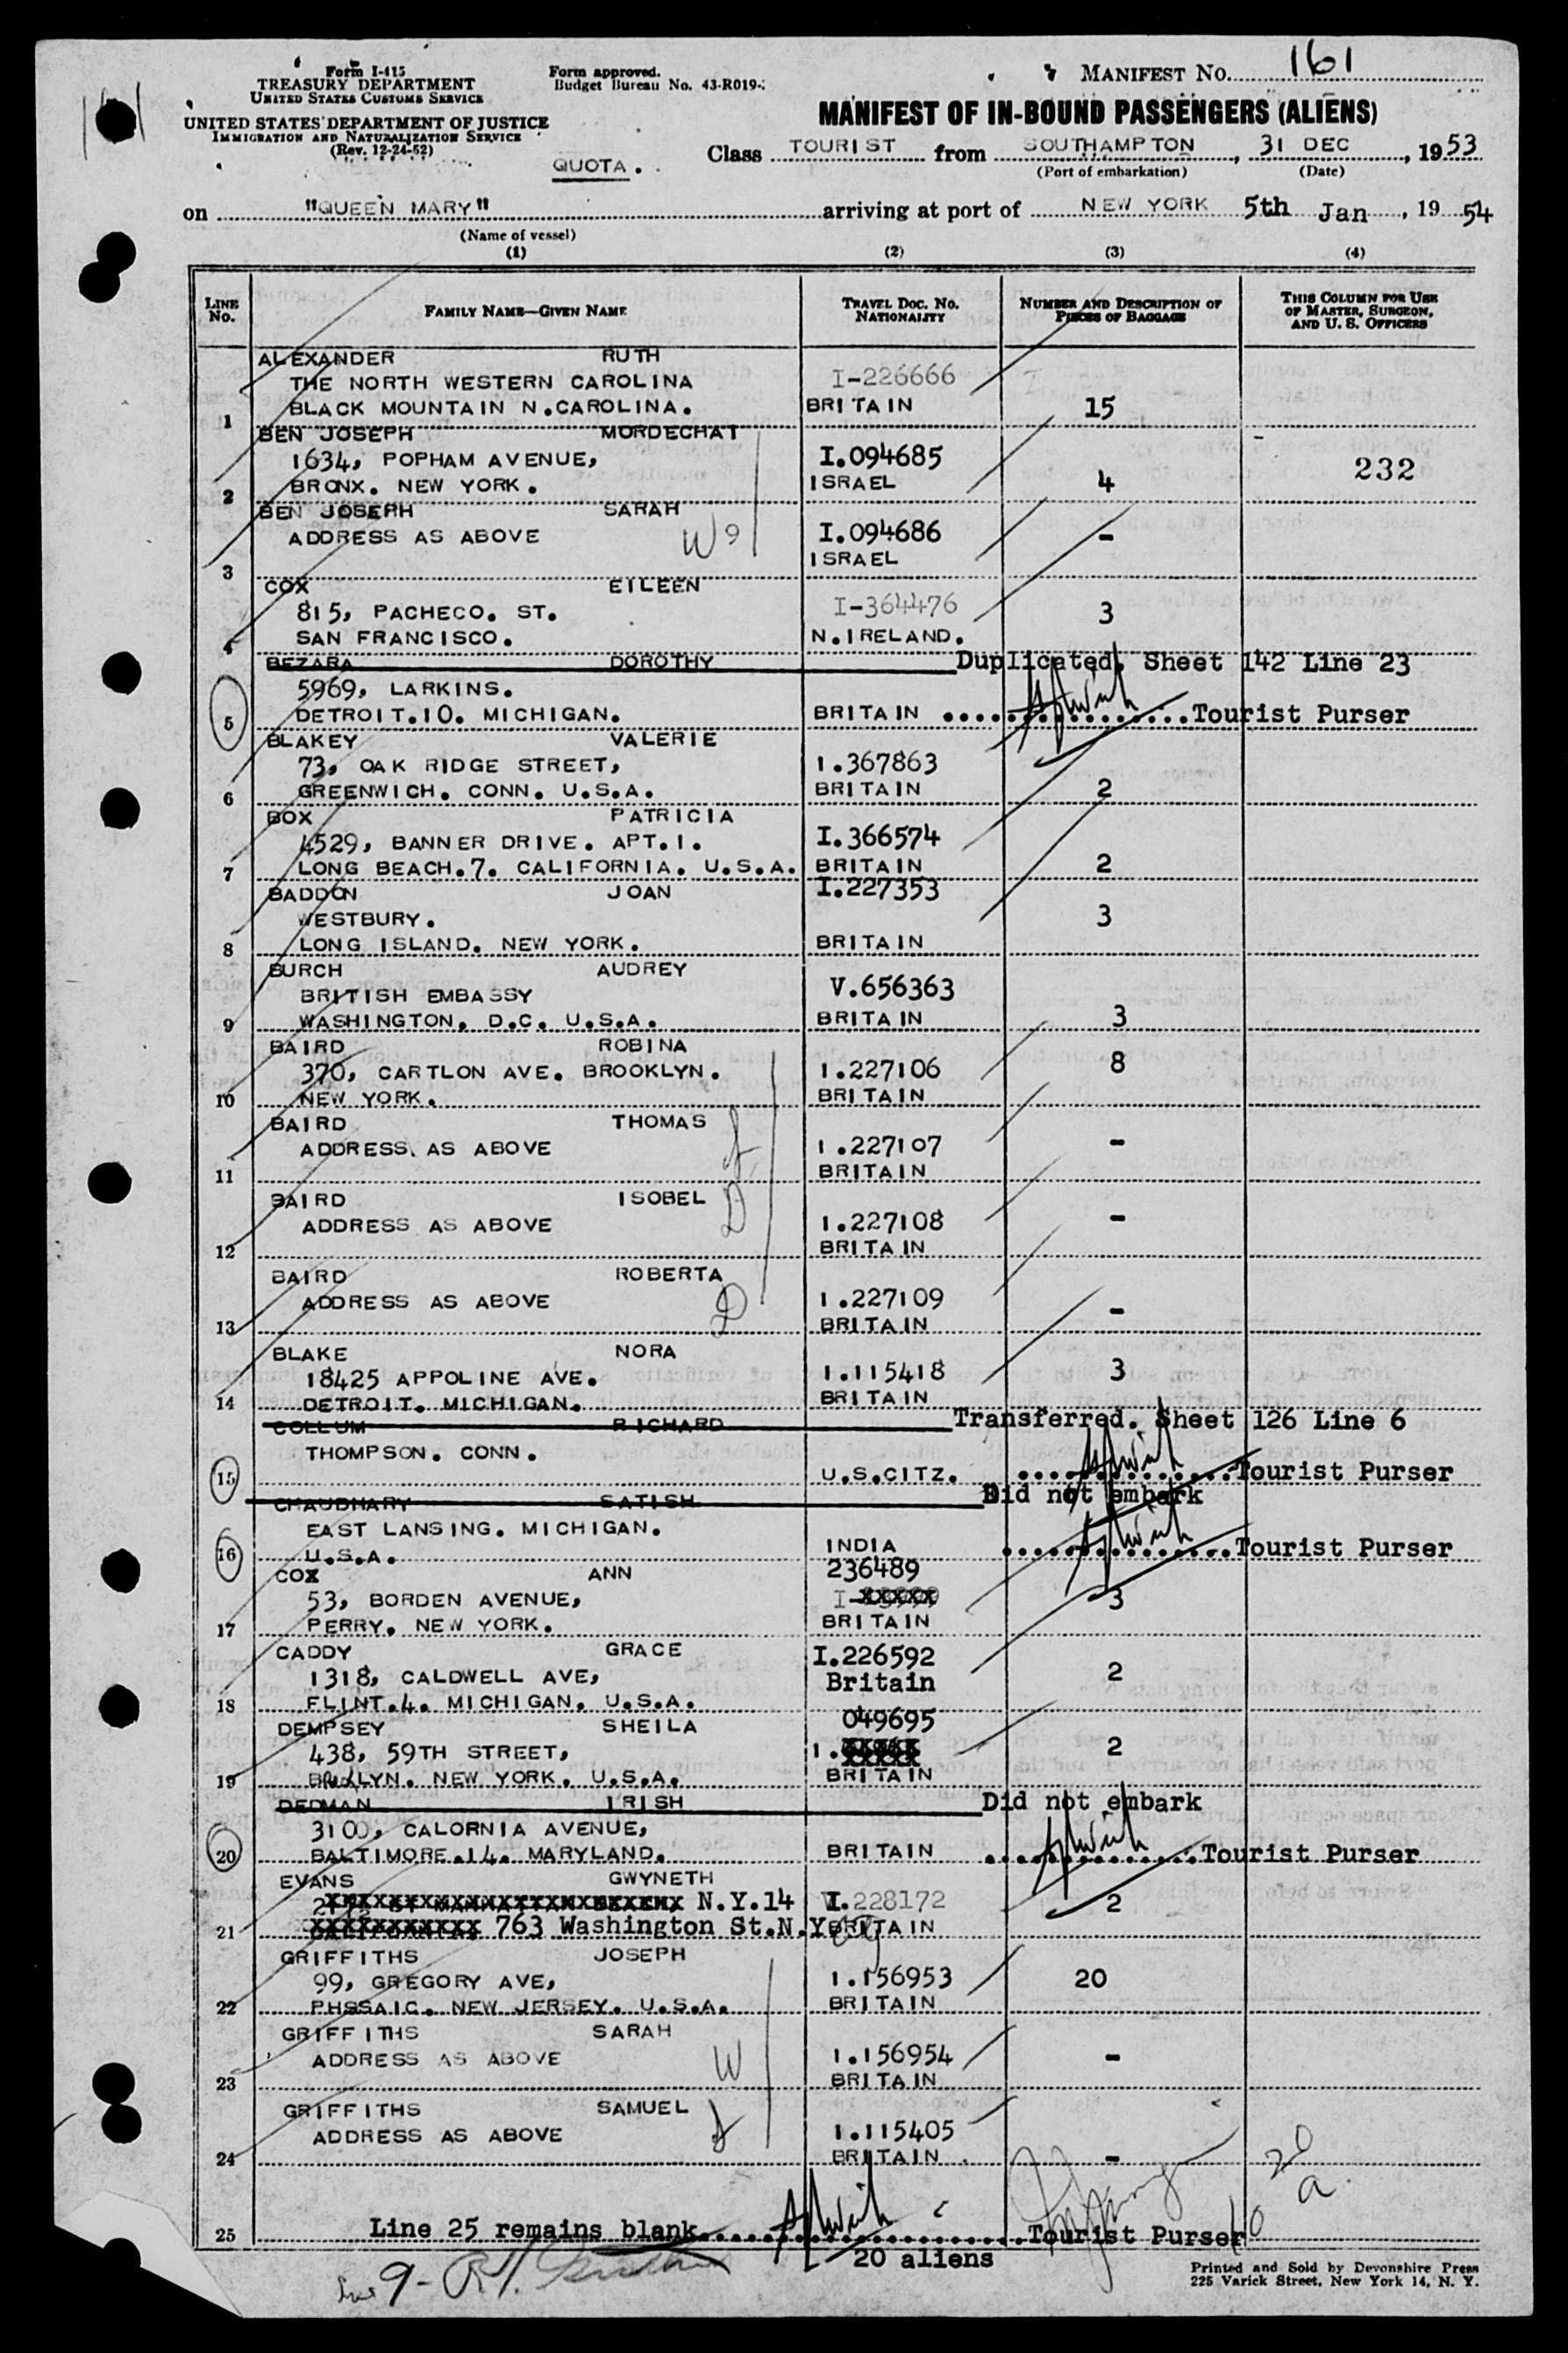 Form I-415
TREASURY DEPARTMENT
UNITED STATES CUSTOMS SERVICE
UNITED STATES DEPARTMENT OF JUSTICE
IMMIGRATION AND NATURALIZATION SERVICE
(Rev. 12-24-52)
Form approved.
Budget Bureau No. 43-R019-
MANIFEST NO. 161
MANIFEST OF IN-BOUND PASSENGERS (ALIENS)
QUOTA.
Class TOURIST from SOUTHAMPTON, 31 DEC, 1953
(Port of embarkation) (Date)
on "QUEEN MARY" arriving at port of NEW YORK 5th Jan, 1954
(Name of vessel)
(1) (2) (3) (4)
LINE NO.
FAMILY NAME—GIVEN NAME
TRAVEL DOC. NO. NATIONALITY
NUMBER AND DESCRIPTION OF PIECES OF BAGGAGE
THIS COLUMN FOR USE OF MASTER, SURGEON, AND U. S. OFFICERS
ALEXANDER RUTH
THE NORTH WESTERN CAROLINA I-226666
1 BLACK MOUNTAIN N.CAROLINA. BRITAIN 15
BEN JOSEPH MORDECHAT
1634, POPHAM AVENUE, I.094685 232
2 BRONX. NEW YORK. ISRAEL 4
BEN JOSEPH SARAH
ADDRESS AS ABOVE W 9 I.094686 -
3 ISRAEL
COX EILEEN
815, PACHECO. ST. I-364476 3
4 SAN FRANCISCO. N.IRELAND.
BEZARA DOROTHY Duplicated. Sheet 142 Line 23
5969, LARKINS.
5 DETROIT.10. MICHIGAN. BRITAIN Tourist Purser
BLAKEY VALERIE
73, OAK RIDGE STREET, 1.367863
6 GREENWICH. CONN. U.S.A. BRITAIN 2
BOX PATRICIA
4529, BANNER DRIVE. APT.1. I.366574
7 LONG BEACH.7. CALIFORNIA. U.S.A. BRITAIN 2
BADDON JOAN I.227353
WESTBURY. 3
8 LONG ISLAND. NEW YORK. BRITAIN
BURCH AUDREY
BRITISH EMBASSY V.656363
9 WASHINGTON. D.C. U.S.A. BRITAIN 3
BAIRD ROBINA
370, CARTLON AVE. BROOKLYN. 1.227106 8
10 NEW YORK. BRITAIN
BAIRD THOMAS
ADDRESS AS ABOVE 1.227107 -
11 BRITAIN
BAIRD ISOBEL
ADDRESS AS ABOVE D 1.227108 -
12 BRITAIN
BAIRD ROBERTA
ADDRESS AS ABOVE D 1.227109 -
13 BRITAIN
BLAKE NORA
18425 APPOLINE AVE. 1.115418 3
14 DETROIT. MICHIGAN. BRITAIN
COLLUM RICHARD Transferred. Sheet 126 Line 6
THOMPSON. CONN.
15 U.S.CITZ. Tourist Purser
CHAUDHARY SATISH Did not embark
EAST LANSING. MICHIGAN.
16 U.S.A. INDIA Tourist Purser
COX ANN 236489
53, BORDEN AVENUE, I-XXXXX 3
17 PERRY. NEW YORK. BRITAIN
CADDY GRACE I.226592
1318, CALDWELL AVE, Britain 2
18 FLINT.4. MICHIGAN. U.S.A.
DEMPSEY SHEILA 049695
438, 59TH STREET, 1.XXXXX 2
19 BRKLYN. NEW YORK. U.S.A. BRITAIN
DEDMAN IRISH Did not embark
3100, CALORNIA AVENUE,
20 BALTIMORE.14. MARYLAND. BRITAIN Tourist Purser
EVANS GWYNETH
N.Y.14 I.228172 2
21 763 Washington St.N.Y BRITAIN
GRIFFITHS JOSEPH
99, GREGORY AVE, 1.156953 20
22 PHSSAIC. NEW JERSEY. U.S.A. BRITAIN
GRIFFITHS SARAH
ADDRESS AS ABOVE W 1.156954 -
23 BRITAIN
GRIFFITHS SAMUEL
ADDRESS AS ABOVE 1.115405
24 BRITAIN -
20 a.
25 Line 25 remains blank Tourist Purser
20 aliens
9-
Printed and Sold by Devonshire Press
225 Varick Street, New York 14, N. Y.